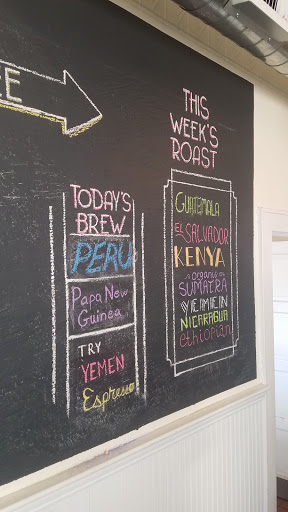 EE
TODAY'S
BREW
PERU
Papa New
Guinea
TRY
YEMEN
Espresso
THIS
WEEK'S
ROAST
GUATEMALA
EL SALVADOR
KENYA
organic
SUMATRA
YEMEN
NICARAGUA
ethiopian